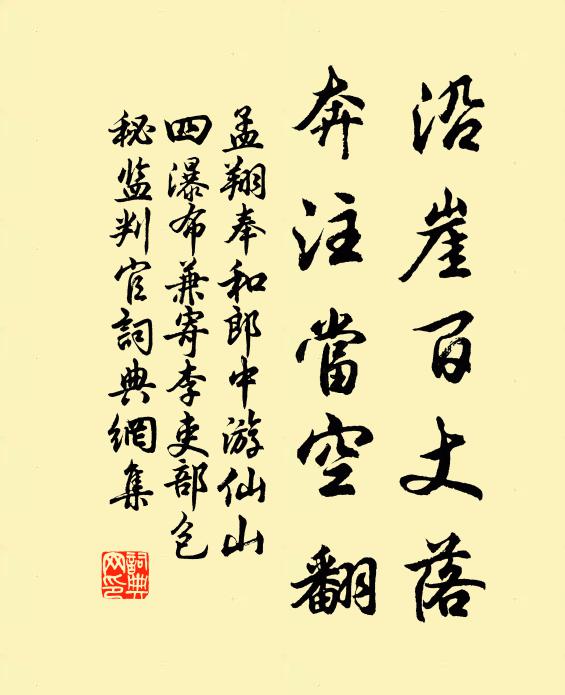 沿崖百丈落
奔注當空翻
孟翔奉和郎中游仙山
四瀑布兼寄李吏部包
秘监判官詞典網集
詞典
网印